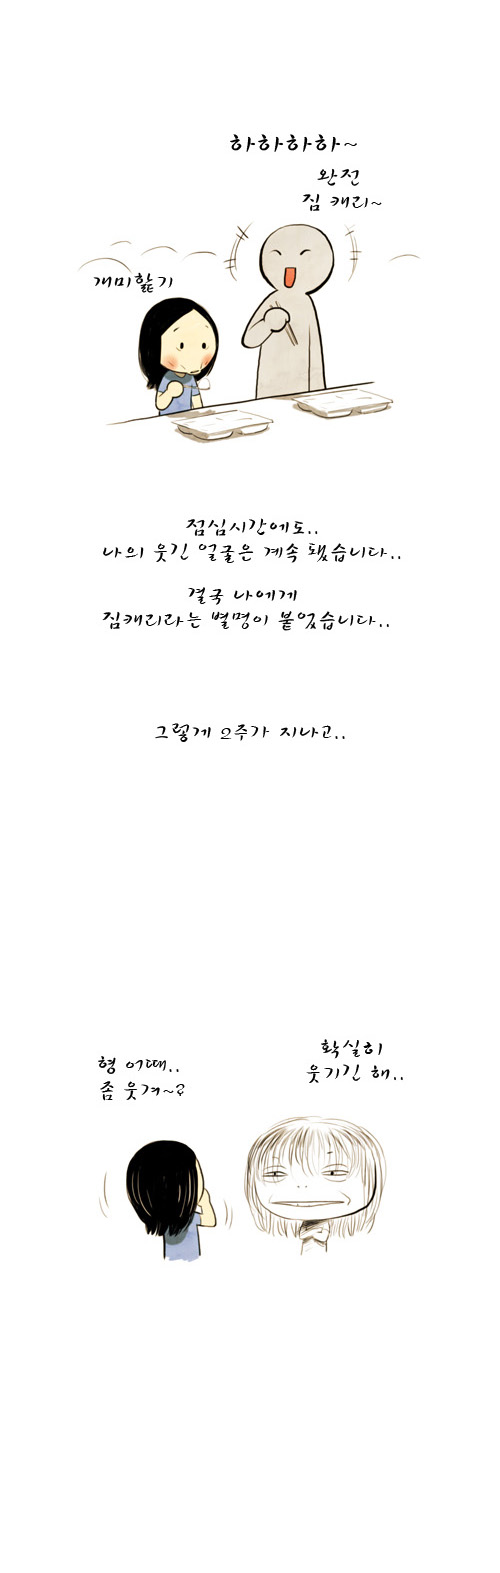 하하하하~
완전
짐 캐리~
개미핥기
점심시간에도..
나의 웃긴 얼굴은 계속 됐습니다..
결국 나에게
짐캐리라는 별명이 붙었습니다..
그렇게 2주가 지나고..
형 어때..
좀 웃겨~?
확실히
웃기긴 해..